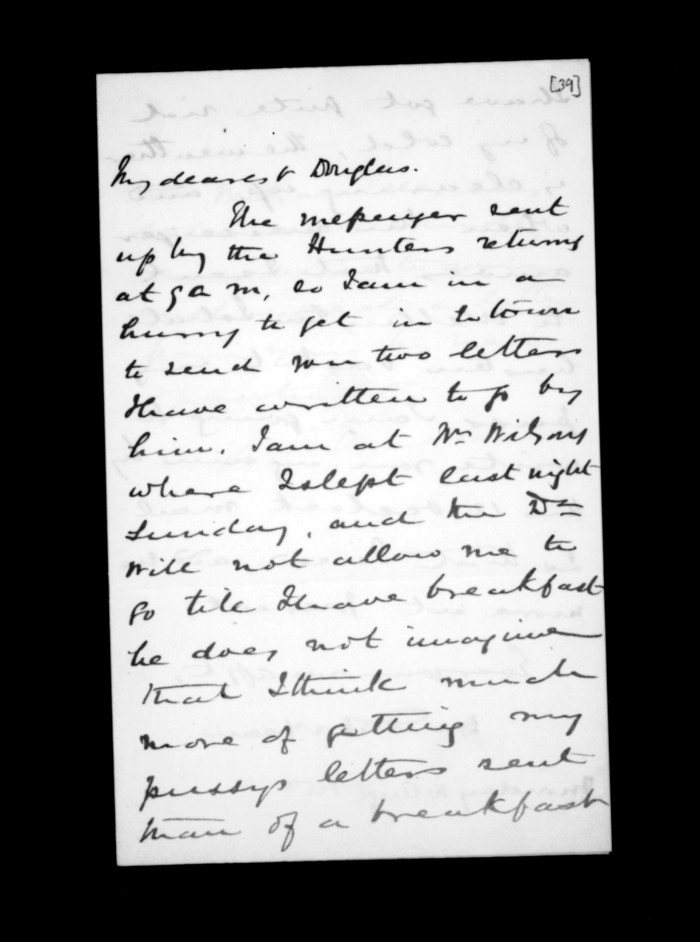 [39]
My dearest Douglas.
The messenger sent
up by the Hunters returns
at 9 a m, so I am in a
hurry to get in to town
to send you two letters
I have written to go by
him. I am at Mr Wilsons
where I slept last night
Sunday, and the Dr
will not allow me to
go till I have breakfast
he does not imagine
that I think much
more of getting my
pussys letters sent
than of a breakfast